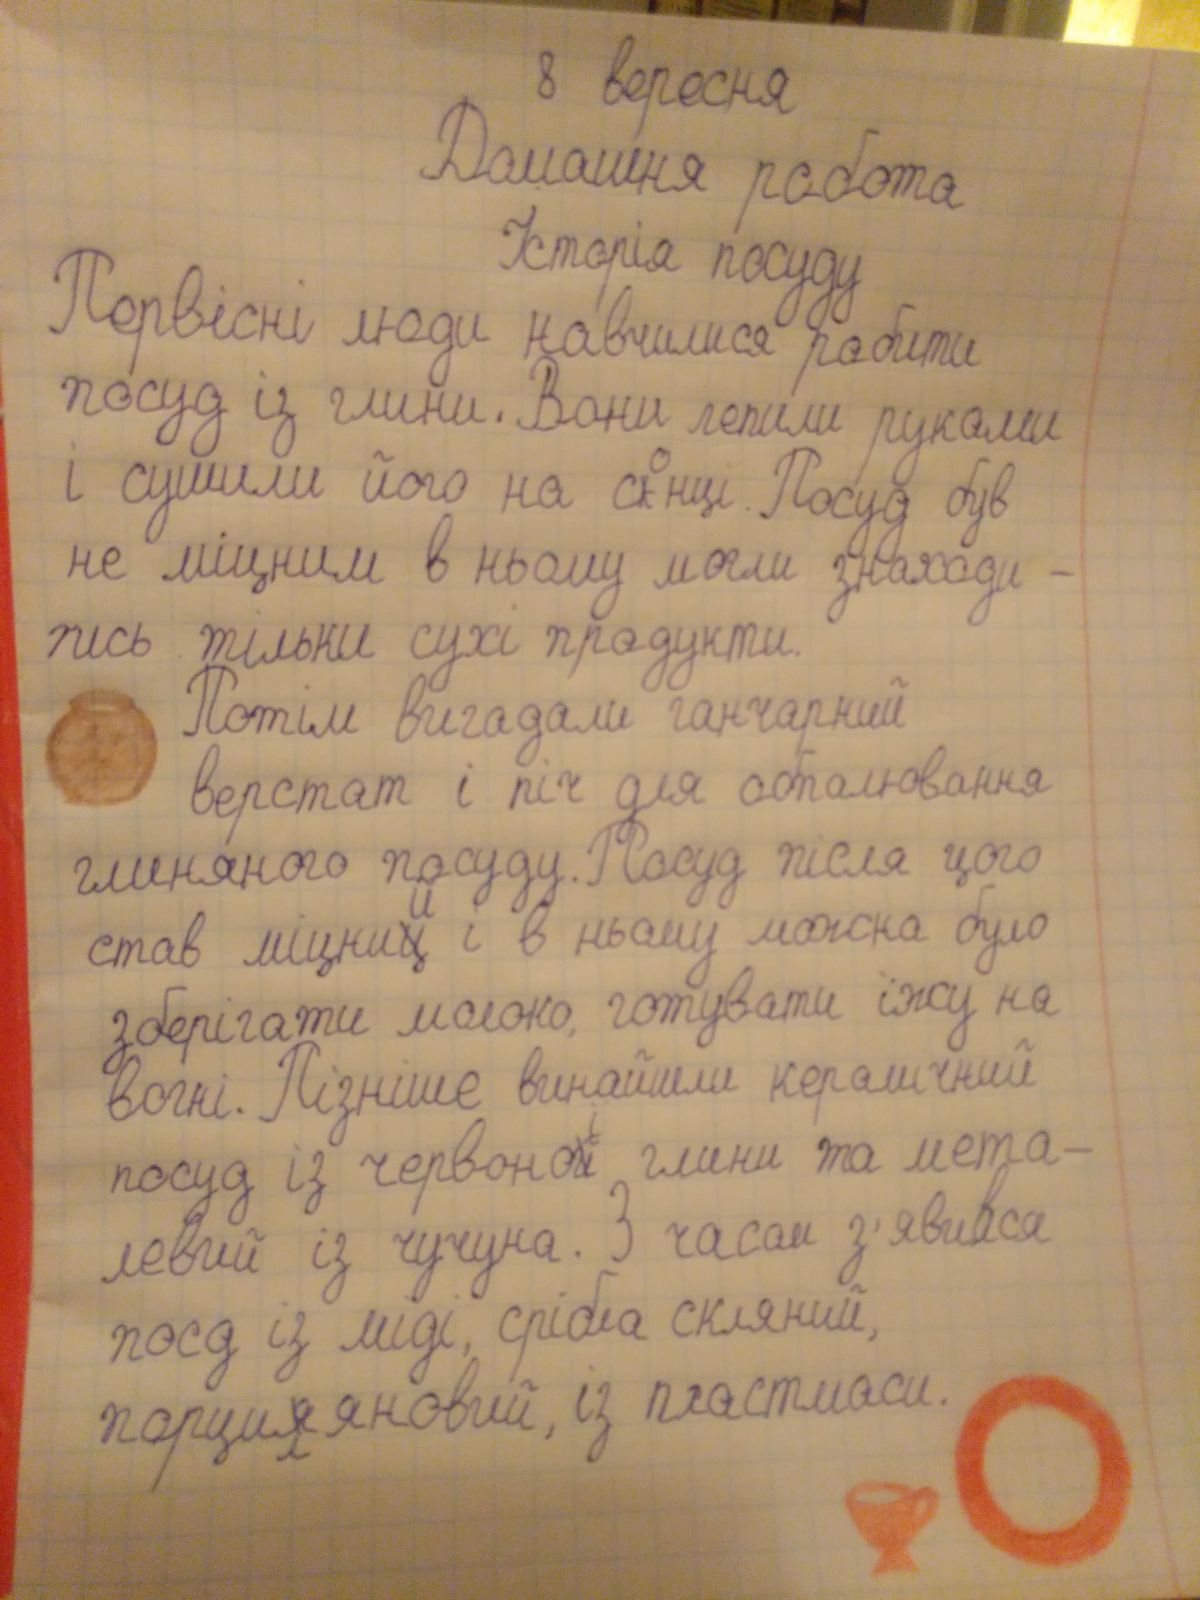 8 вересня
Домашня робота
Історія посуду
Первісні люди навчилися робити
посуд із глини. Вони лепили руками
і сушили його на сонці. Посуд був
не міцним в ньому могли знаходи-
тись тільки сухі продукти.
Потім вигадали ганчарний
верстат і піч для обпалювання
глиняного посуду. Посуд після цого
став міцний і в ньому можна було
зберігати молоко, готувати їжу на
вогні. Пізніше винайшли керамічний
посуд із червоної глини та мета-
левий із чучуна. З часом з'явився
посд із міді, срібла скляний,
порцияновий, із пластмаси.